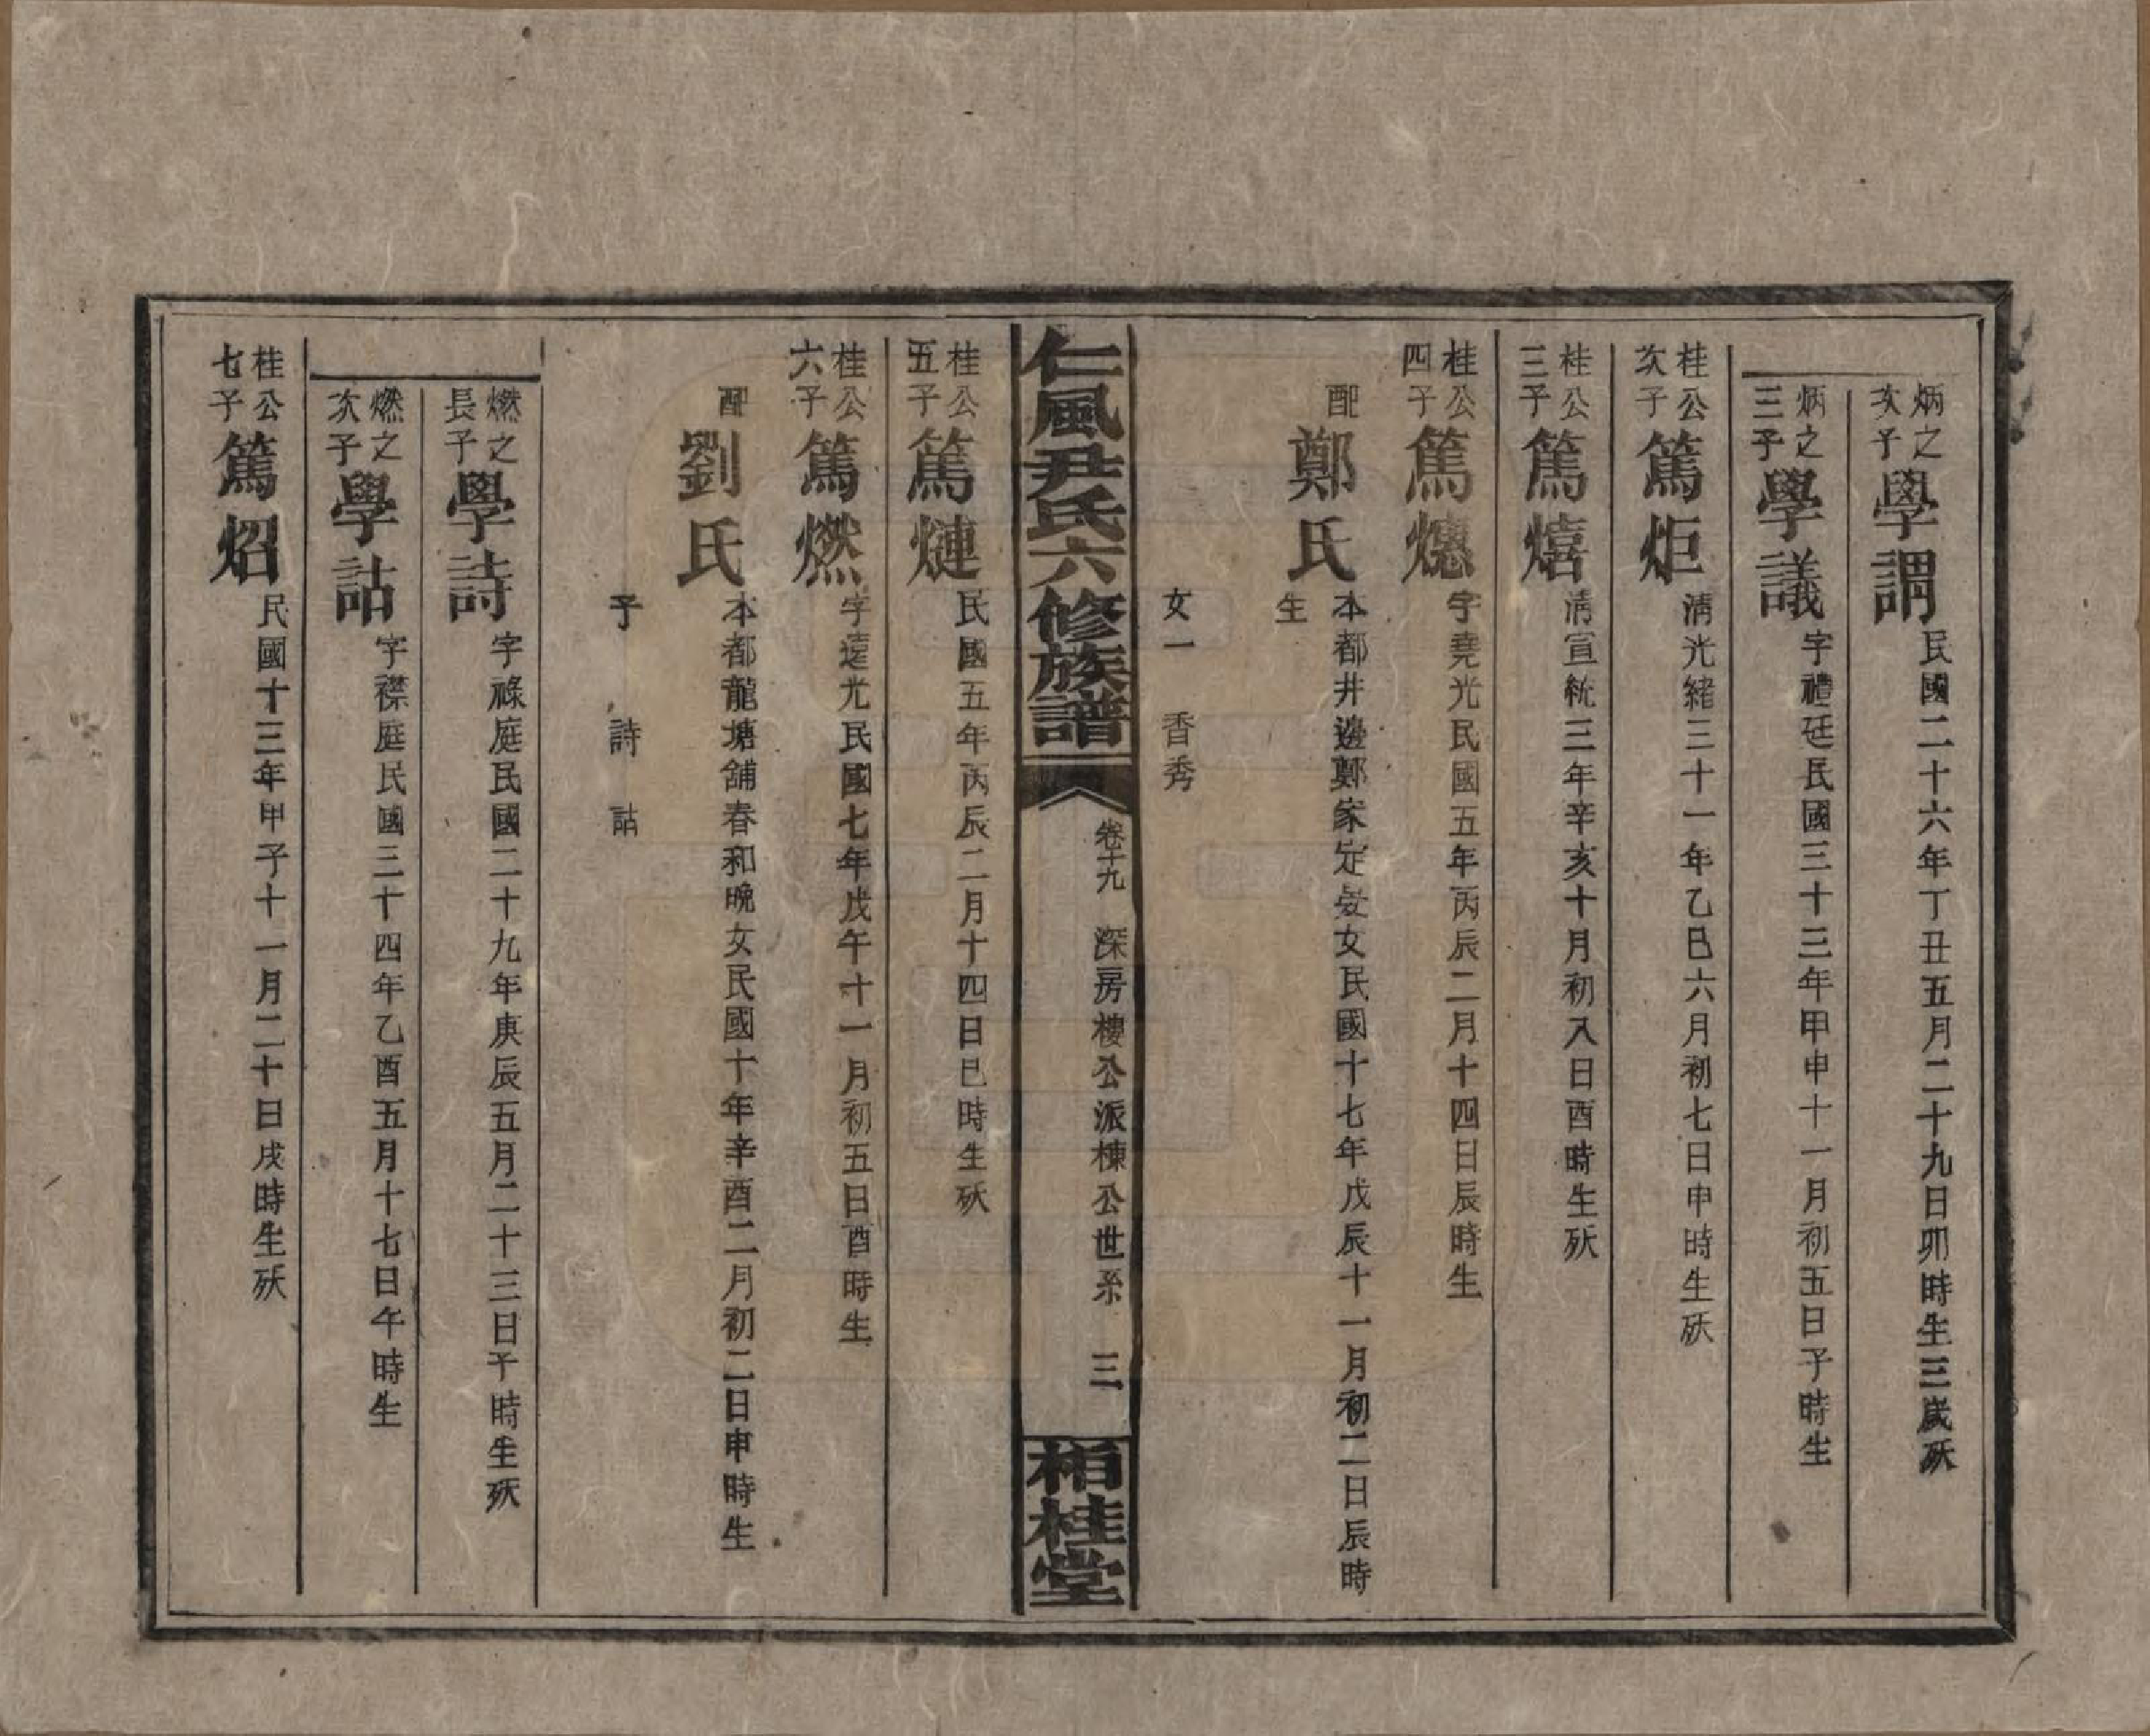 炳之次子學謂民國二十六年丁丑五月二十九日卯時生三歲殀
炳之三子學議字禮廷民國三十三年甲申十一月初五日子時生
桂公次子篤炬清光緒三十一年乙巳六月初七日申時生殀
桂公三子篤熺清宣統三年辛亥十月初八日酉時生殀
桂公四子篤燻字堯光民國五年丙辰二月十四日辰時生
配鄭氏本都井邊鄭家定安女民國十七年戊辰十一月初二日辰時
生
女一 香秀
仁風尹氏六修族譜 卷十九 深房樓公派棟公世系 三 栢桂堂
桂公五子篤熑民國五年丙辰二月十四日巳時生殀
桂公六子篤燃字遠光民國七年戊午十一月初五日酉時生
配劉氏本都龍塘舖春和晚女民國十年辛酉二月初二日申時生
子 詩 詁
燃之長子學詩字祿庭民國二十九年庚辰五月二十三日子時生殀
燃之次子學詁字襟庭民國三十四年乙酉五月十七日午時生
桂公七子篤炤民國十三年甲子十一月二十日戌時生殀